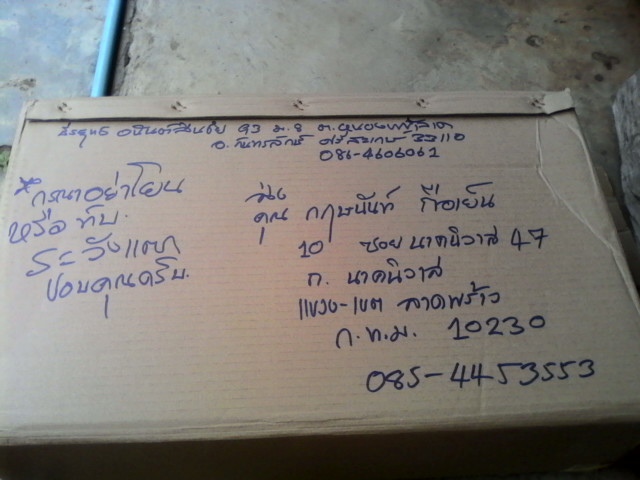 93 ม.8 ต.
อ. กันทรลักษ์ ศรีสะเกษ 33110
086-4606061
* กรุณาอย่าโยน
หรือ ทับ.
ระวังแตก
ขอบคุณครับ.
ส่ง
คุณ กฤษนันท์
10 ซอย นาคนิวาส 47
ถ. นาคนิวาส
แขวง-เขต ลาดพร้าว
ก.ท.ม. 10230
085-4453553